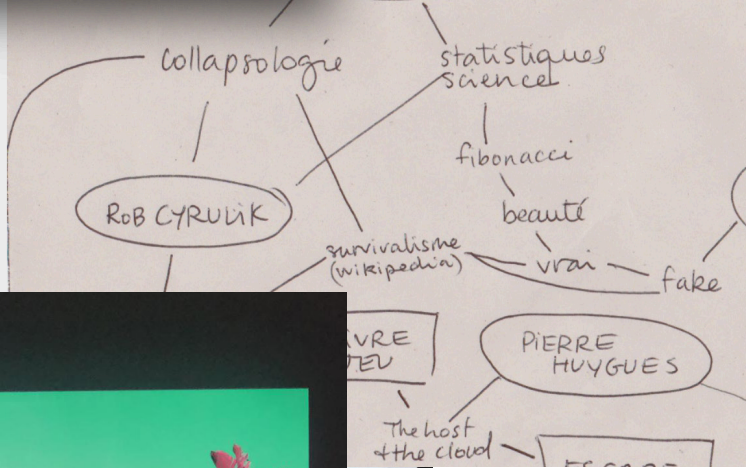 collapsologie
statistiques
science
fibonacci
RoB CYRULiK
beauté
survivalisme
(wikipedia)
vrai
fake
PiERRE
HUYGUES
The host
& the cloud